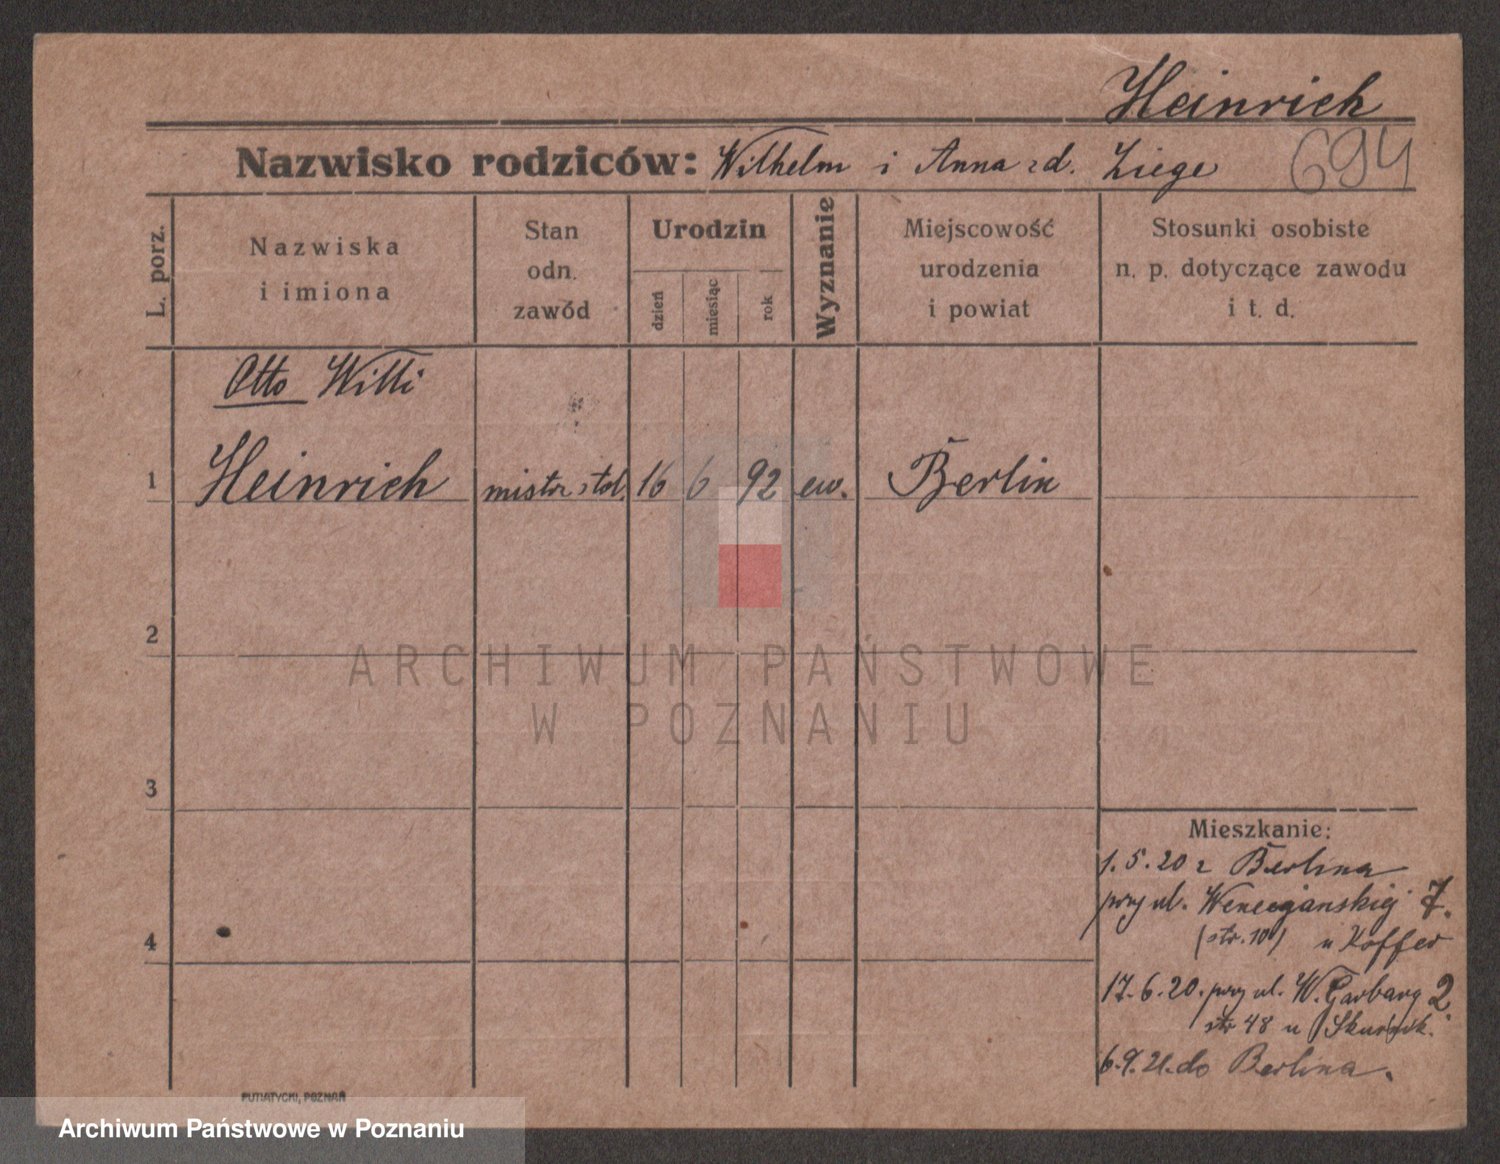 Heinrich
Nazwisko rodziców: Wilhelm i Anna zd. Ziege 694
L. porz.
Nazwiska
i imiona
Stan
odn.
zawód
Urodzin
dzień
miesiąc
rok
Wyznanie
Miejscowość
urodzenia
i powiat
Stosunki osobiste
n. p. dotyczące zawodu
i t. d.
Otto Willi
1 Heinrich mistrz stol. 16 6 92 ew. Berlin
2
3
4
ARCHIWUM PAŃSTWOWE
W POZNANIU
Mieszkanie:
1.5.20 z Berlina
przy ul. Wenecjanskiej 7.
(str. 10) u Koffer
17.6.20. przy ul. W. Garbary 2
str 48 u
6.9.21. do Berlina.
PUTIATYCKI, POZNAŃ
Archiwum Państwowe w Poznaniu